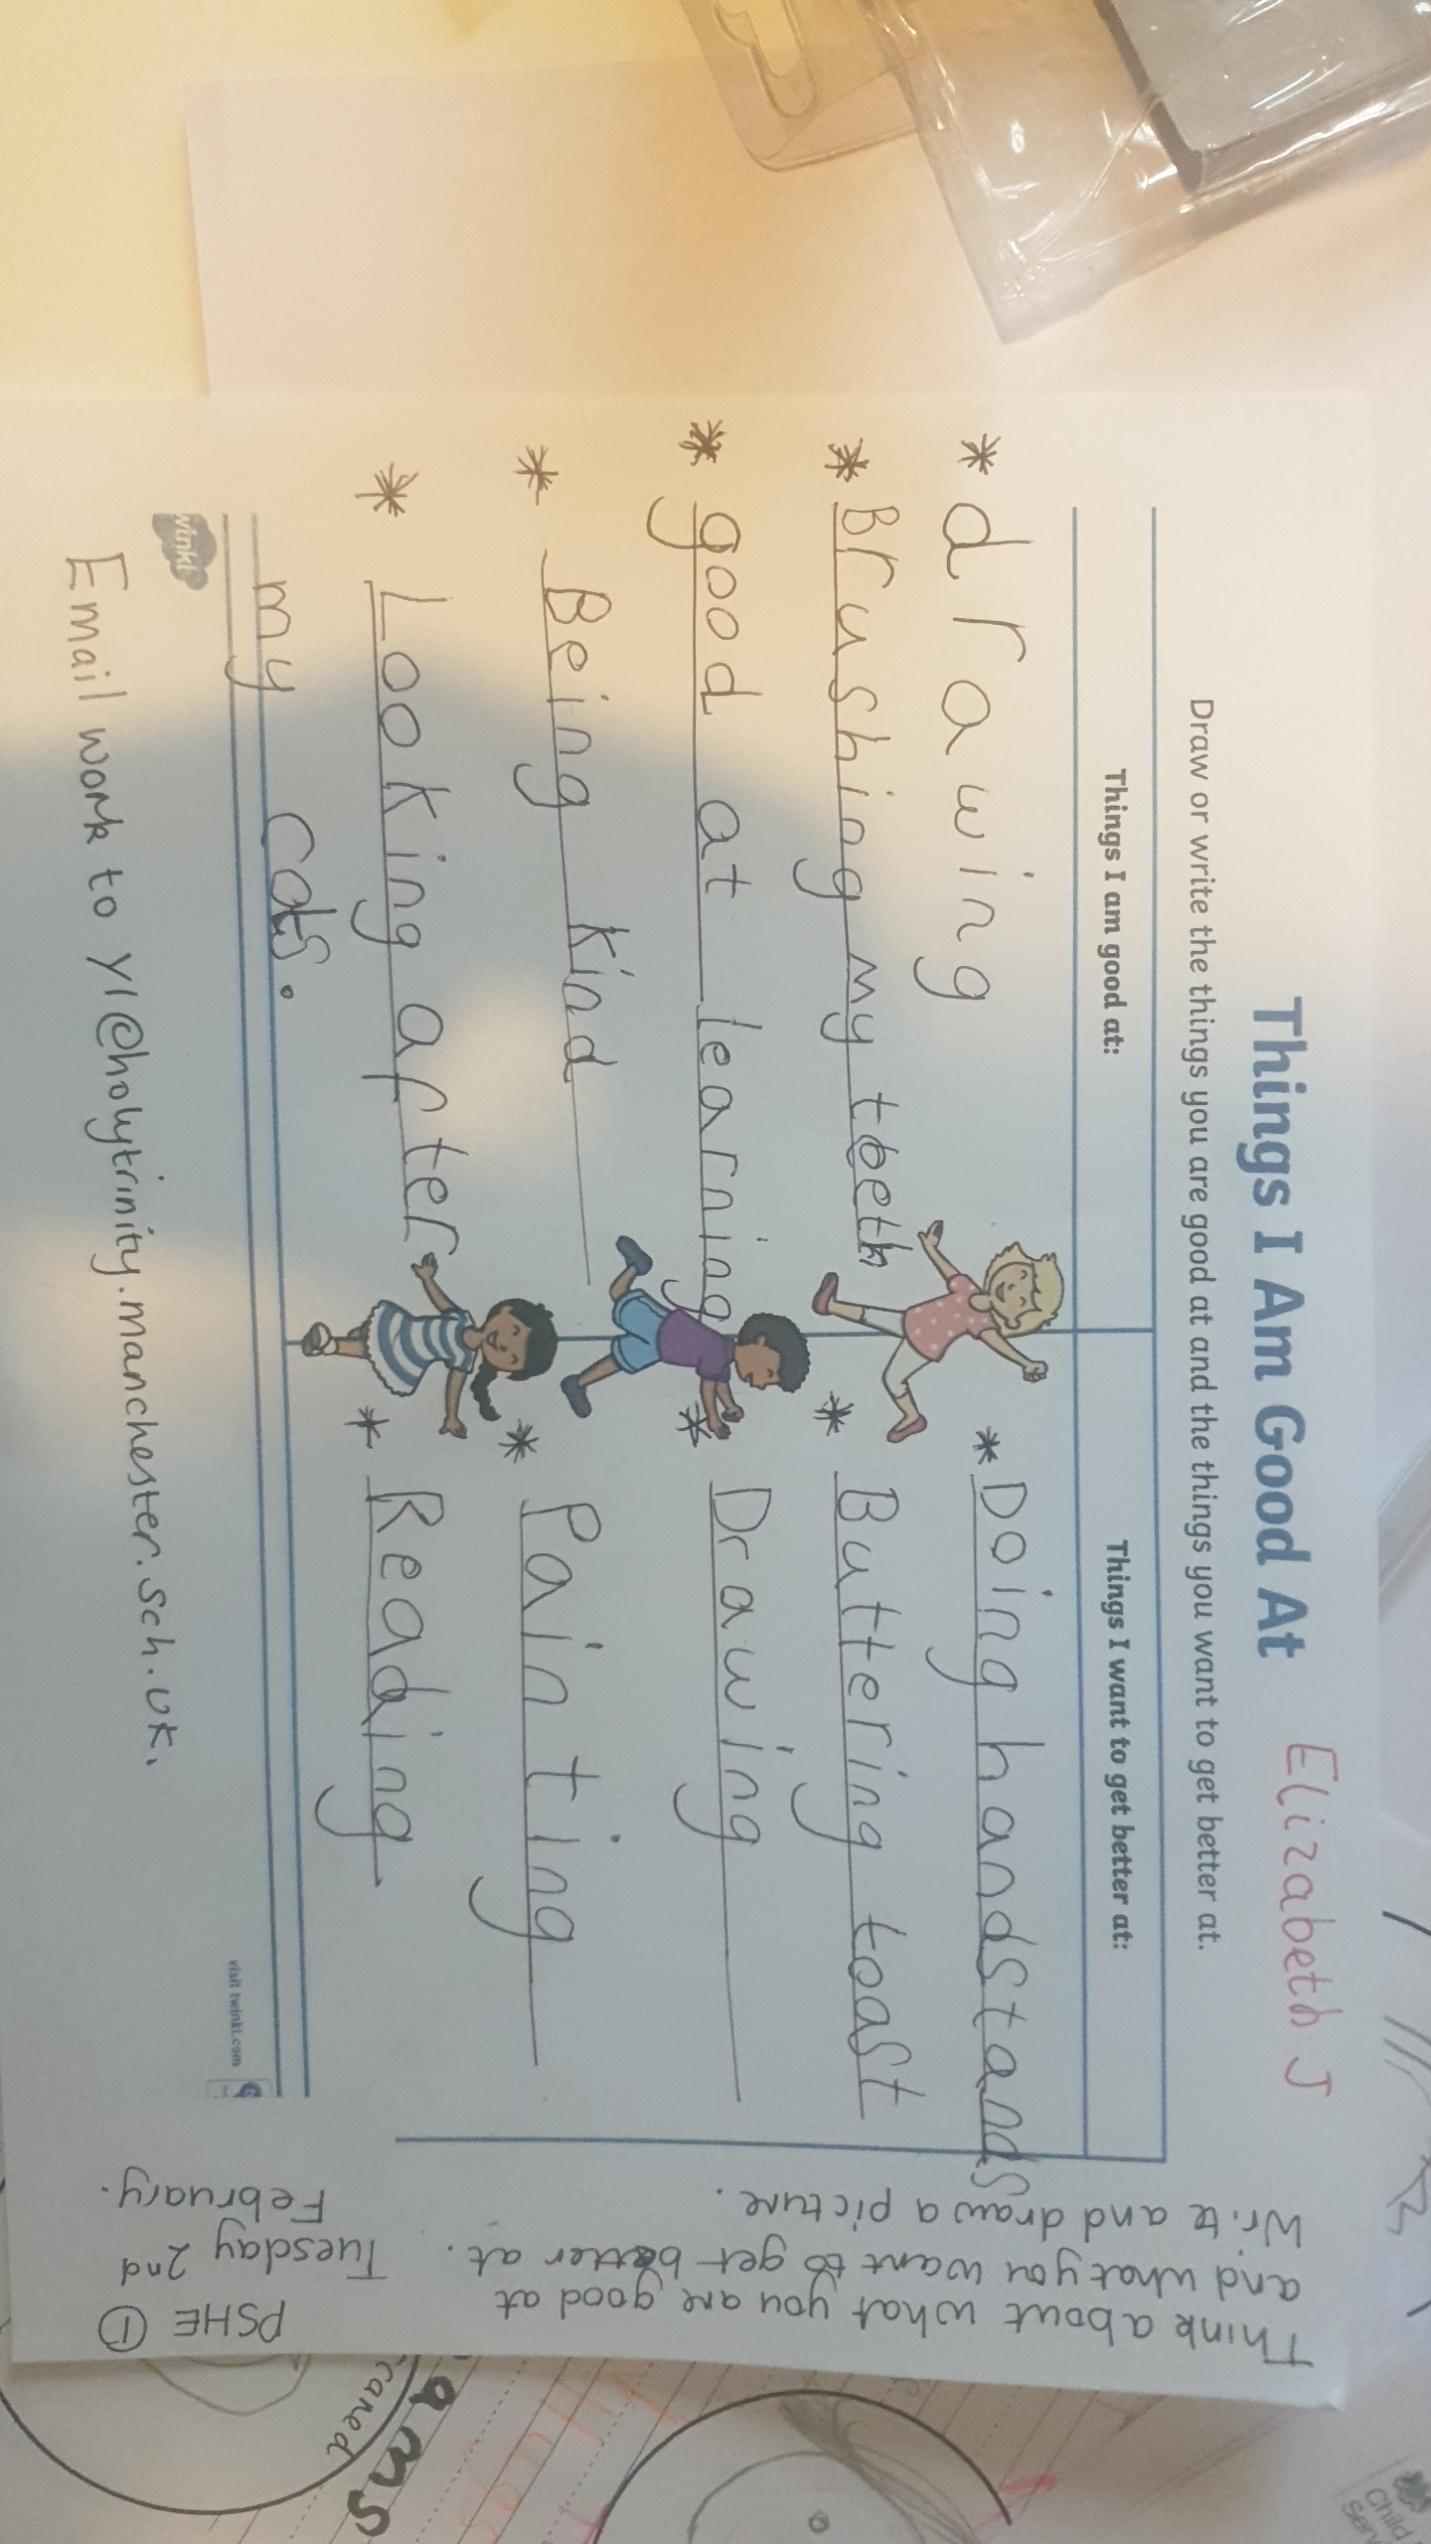 Things I Am Good At
Elizabeth J
Draw or write the things you are good at and the things you want to get better at.
Things I am good at:
Things I want to get better at:
* drawing
* Brushing my teeth
* good at learning
* Being kind
* Looking after
my cats.
* Doing handstands
* Buttering toast
* Drawing
* Painting
* Reading
twinkl
visit twinkl.com
Email work to y1@holytrinity.manchester.sch.uk.
Think about what you are good at
and what you want to get better at.
Write and draw a picture.
PSHE ①
Tuesday 2nd
February.
Child